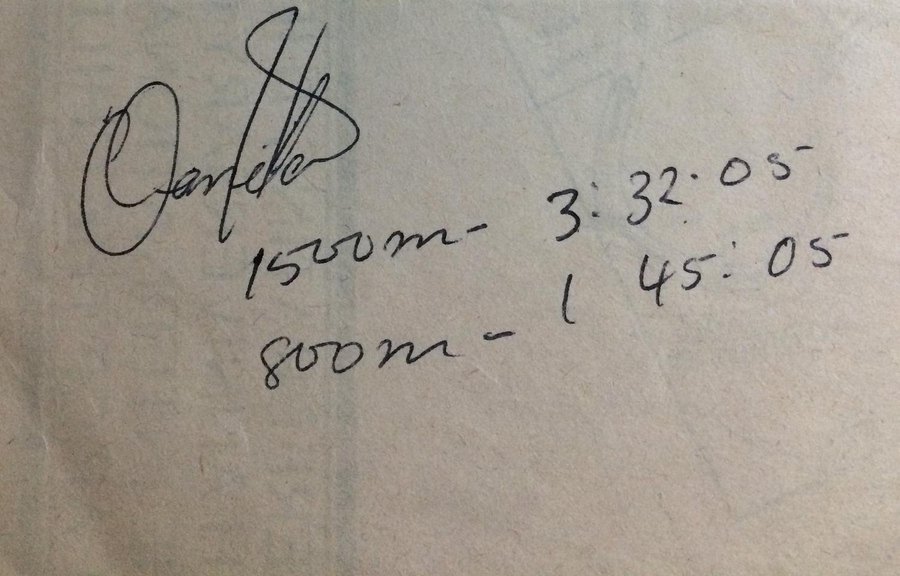 1500m - 3: 32.05
800m - 1 45: 05